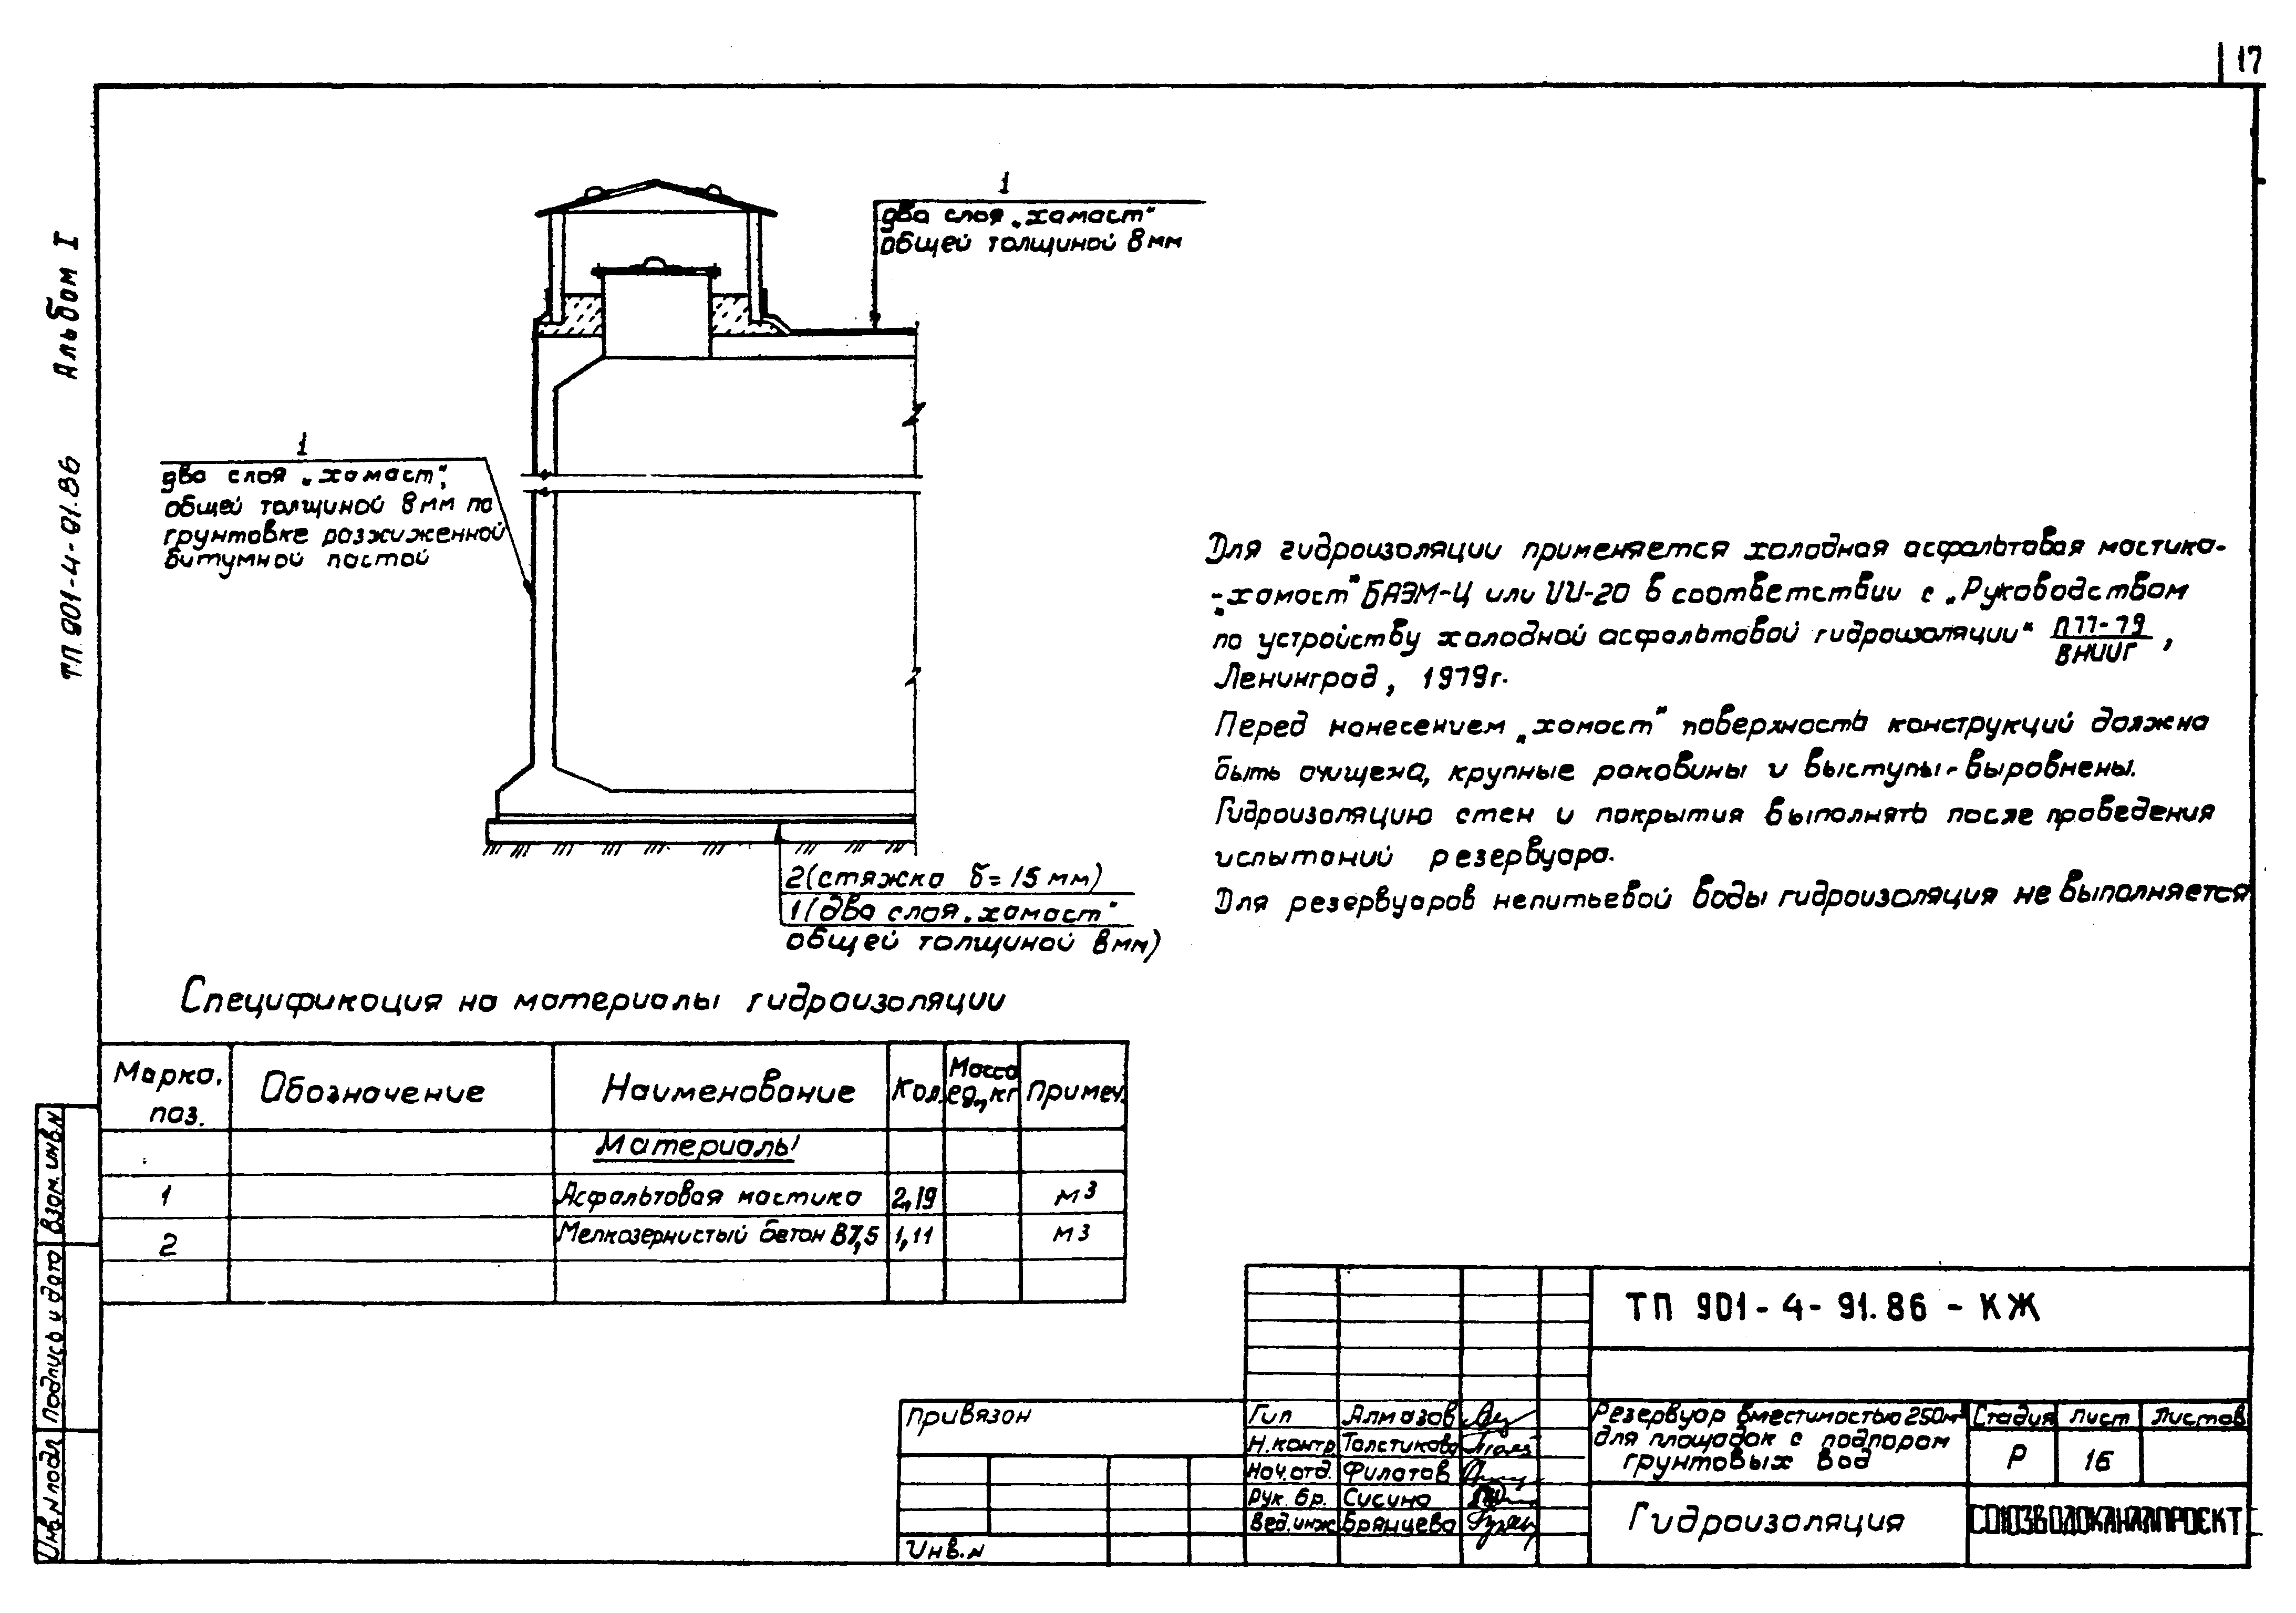 17
ТП 901-4-91.86 Альбом I
1
два слоя „хамаст“
общей толщиной 8мм
1
два слоя „хамаст“,
общей толщиной 8мм по
грунтовке разжиженной
битумной пастой
2(стяжка δ=15 мм)
1(два слоя „хамаст“
общей толщиной 8мм)
Для гидроизоляции применяется холодная асфальтовая мастика-
-„хамаст“ БАЭМ-Ц или ИИ-20 в соответствии с „Руководством
по устройству холодной асфальтовой гидроизоляции“ П77-79/ВНИИГ,
Ленинград, 1979г.
Перед нанесением „хамаст“ поверхность конструкций должна
быть очищена, крупные раковины и выступы-выровнены.
Гидроизоляцию стен и покрытия выполнять после проведения
испытаний резервуара.
Для резервуаров непитьевой воды гидроизоляция не выполняется
Спецификация на материалы гидроизоляции
Марка, поз. Обозначение Наименование Кол. Масса ед., кг Примеч.
Материалы
1 Асфальтовая мастика 2,19 м3
2 Мелкозернистый бетон В7,5 1,11 м3
Взам. инв.N
Подпись и дата
Инв.N подл
Привязан
Инв.N
Гип Алмазов
Н.контр. Толстикова
Нач.отд. Филатов
Рук. бр. Сисина
Вед.инж Брянцева
ТП 901-4-91.86-КЖ
Резервуар вместимостью 250м3
для площадок с подпором
грунтовых вод
Стадия Лист Листов
Р 16
Гидроизоляция
СОЮЗВОДОКАНАЛПРОЕКТ